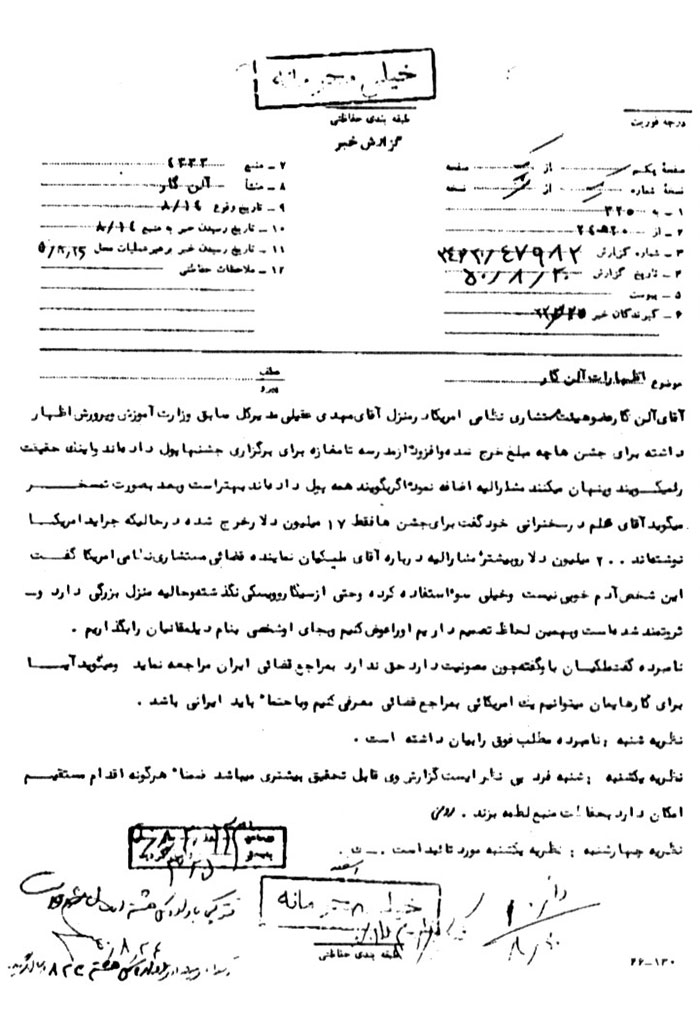 خیلی محرمانه
طبقه بندی حفاظتی
گزارش خبر
درجه فوریت
صفحه یکم از صفحه
نسخه شماره از نسخه
۱ - به ۳۲۵
۲ - از ۲۰ ه ۲۴
۳ - شماره گزارش
۴ - تاریخ گزارش ۵۰/۸/۲۰
۵ - پیوست
۶ - گیرندگان خبر
۷ - منبع ۶۳۳۳
۸ - منشأ آلن گار
۹ - تاریخ وقوع ۸/۱۴
۱۰ - تاریخ رسیدن خبر به منبع ۸/۱۴
۱۱ - تاریخ رسیدن خبر به رهبر عملیات محل
۱۲ - ملاحظات حفاظتی
موضوع اظهارات آلن گار
عطف
پیرو
آقای آلن گار عضو هیئت مستشاری نظامی امریکا در منزل آقای مهدی عقیلی مدیرکل سابق وزارت آموزش و پرورش اظهار
داشته برای جشن ها چه مبلغ خرج شده و افزود از مدرسه تا مغازه برای برگزاری جشنها پول داده‌اند و اینک حقیقت
را نمیگویند و پنهان میکنند مشارالیه اضافه نمود اگر بگویند همه پول داده‌اند بهتر است و بعد بصورت تمسخر
میگوید آقای علم در سخنرانی خود گفت برای جشن ها فقط ۱۷ میلیون دلار خرج شده در حالیکه جراید امریکا
نوشته‌اند ۲۰۰ میلیون دلار و بیشتر مشارالیه درباره آقای ملکیان نماینده قضائی مستشاری نظامی امریکا گفت
این شخص آدم خوبی نیست و خیلی سوءاستفاده کرده و حتی از سیگار و ویسکی نگذشته و حالیه منزل بزرگی دارد و
ثروتمند شده است و بهمین لحاظ تصمیم داریم او را عوض کنیم و بجای او شخصی بنام دیلمقانیان را بگذاریم .
نامبرده گفت ملکیان باو گفته چون مصونیت دارد حق ندارد بمراجع قضائی ایران مراجعه نماید و میگوید آیا
برای کارهایمان میتوانیم یک امریکائی بمراجع قضائی معرفی کنیم و یا حتماً باید ایرانی باشد .
نظریه شنبه : نامبرده مطلب فوق را بیان داشته است .
نظریه یکشنبه : شنبه فرد بی نظریست گزارش وی قابل تحقیق بیشتری میباشد ضمناً هرگونه اقدام مستقیم
امکان دارد بحفاظت منبع لطمه بزند .
نظریه چهارشنبه : نظریه یکشنبه مورد تائید است .
خیلی محرمانه
طبقه بندی حفاظتی
۲۶-۱۳۰